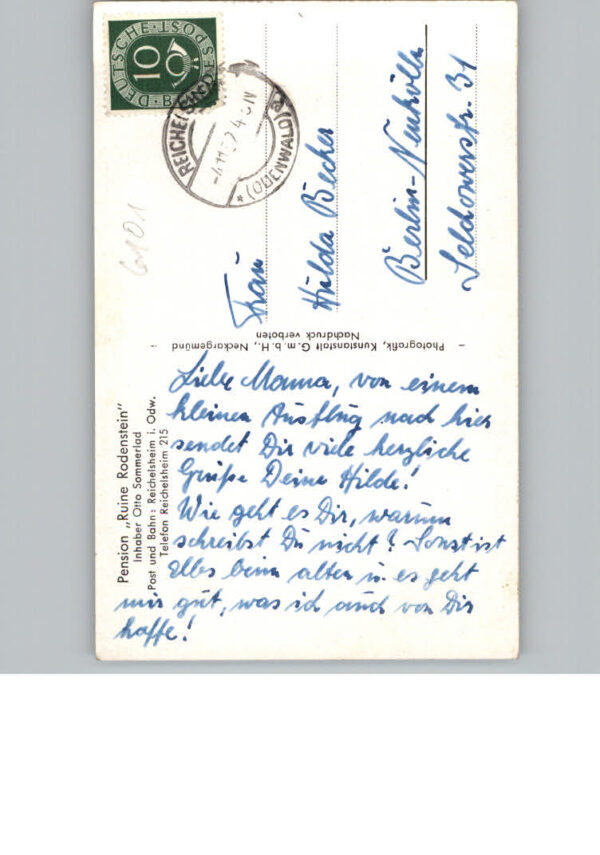 Pension „Ruine Rodenstein"
Inhaber Otto Sommerlad
Post und Bahn: Reichelsheim i. Odw.
Telefon Reichelsheim 215
Liebe Mama, von einem
kleinen Ausflug nach hier
sendet Dir viele herzliche
Grüße Deine Hilde!
Wie geht es Dir, warum
schreibst Du nicht? Sonst ist
alles beim alten u. es geht
mir gut, was ich auch von Dir
hoffe!
- Photografik, Kunstanstalt G.m.b.H., Neckargemünd -
Nachdruck verboten
DEUTSCHE BUNDESPOST
10
REICHELSHEIM
(ODENWALD)
Frau
Hilda Becker
Berlin-Neukölln
Selchowerstr. 31